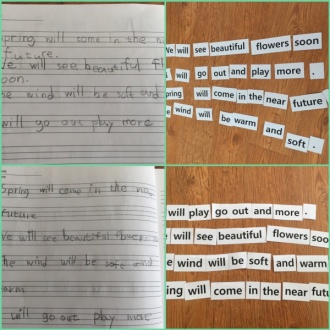 spring will come in the ne
future.
We will see beautiful fl
oon.
he wind will be soft and
will go out play more
We will see beautiful flowers soon
will go out and play more .
pring will come in the near future
wind will be warm and
soft .
Spring will come in the nea
future
We will see beautiful flower
the wind will be safe and
warm
will go out play more
will play go out and more .
will see beautiful flowers soo
e wind will be soft and warm
ing will come in the near futu